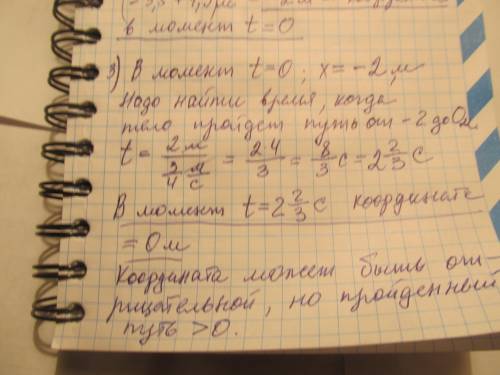 в момент t=0
3) В момент t=0; x=-2м
Надо найти время, когда
тело пройдет путь от -2 до 0м
t= 2м / 3/4 м/с = 2 4 / 3 = 8/3 с = 2 2/3 с
В момент t=2 2/3 с координата
= 0м
Координата может быть от-
рицательной, но пройденный
путь >0.